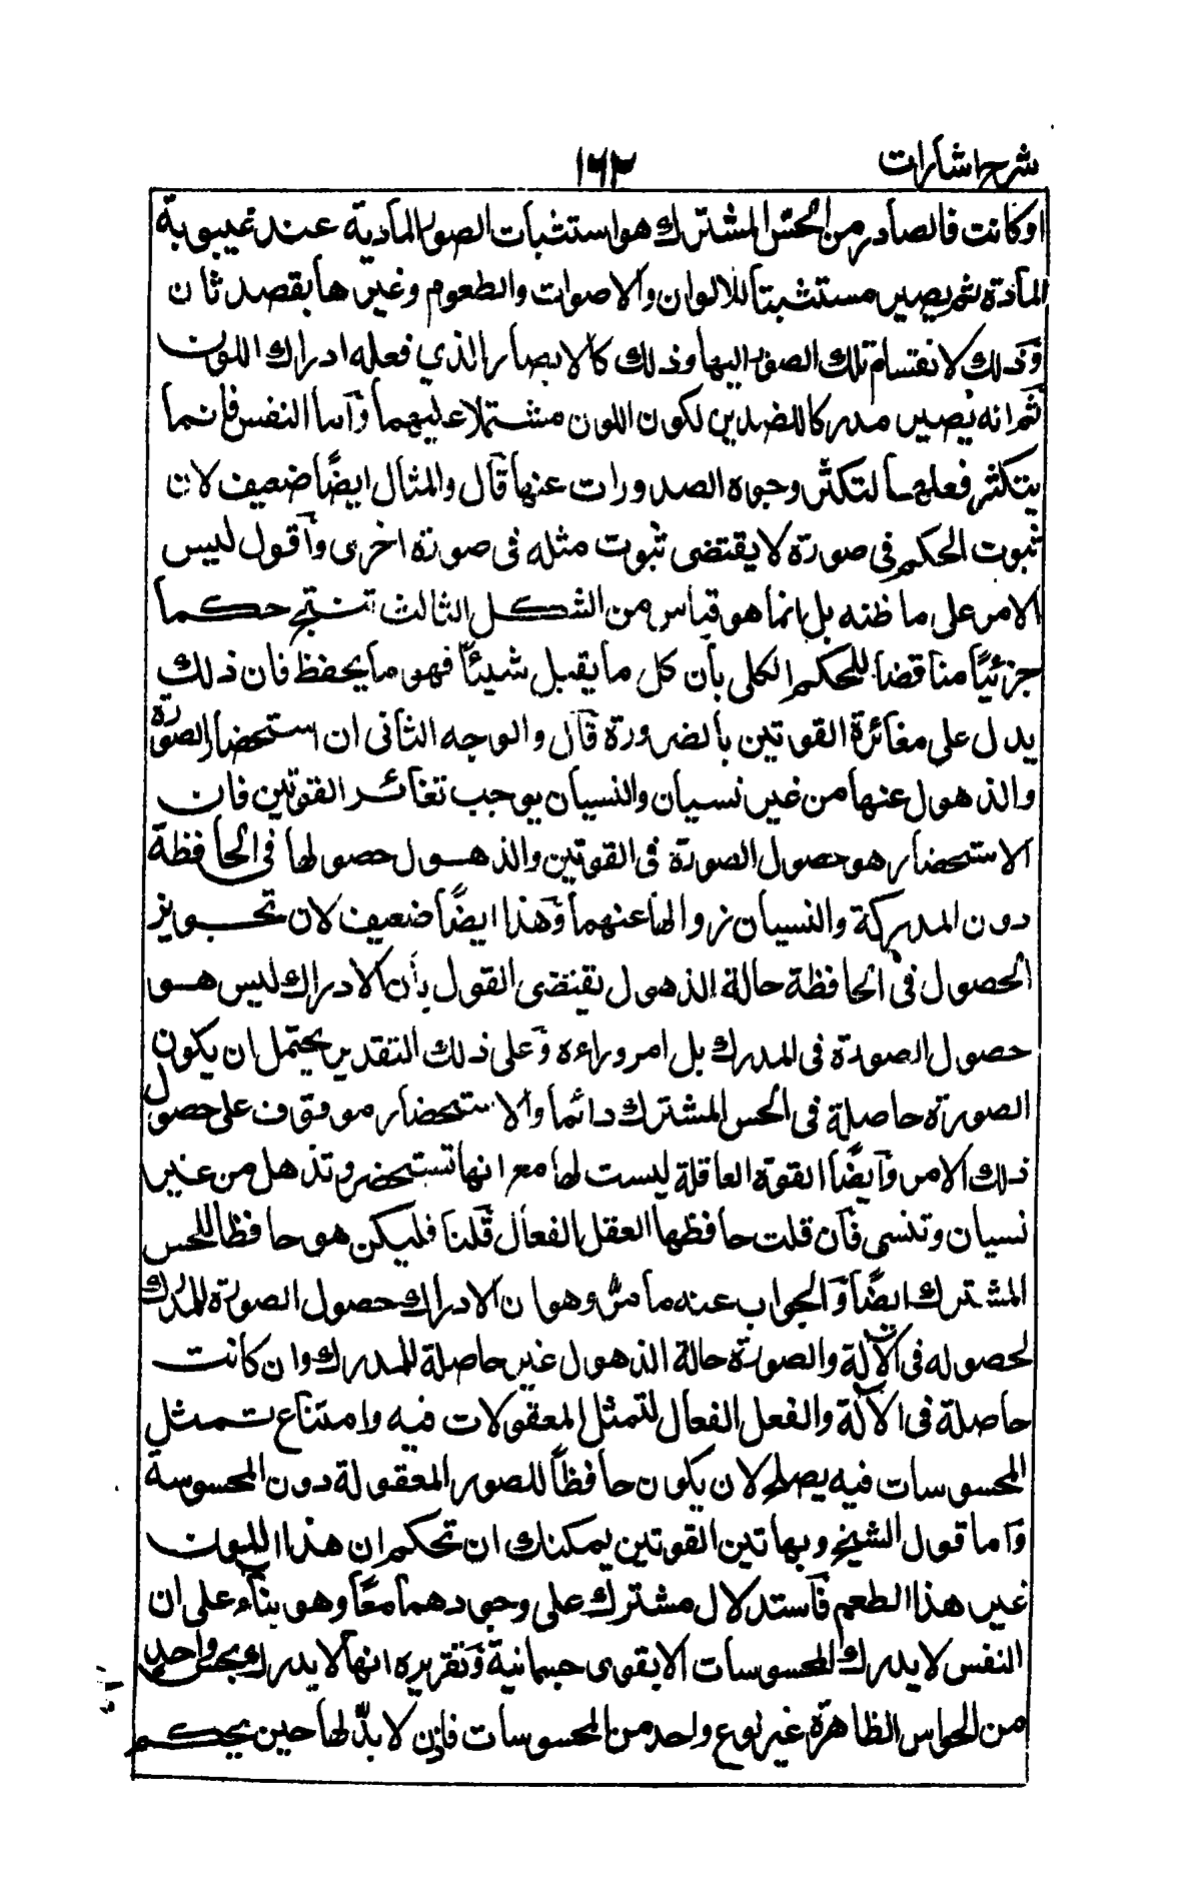 شرح اشارات ١٦٣
او كانت فالصادر من الحس المشترك هو استثبات الصور المادية عند غيبوبة
المادة ثم يصير مستثبتا للالوان والاصوات والطعوم وغيرها بقصد ثان
وذلك لانقسام تلك الصور اليها وذلك كالابصار الذي فعله ادراك اللون
ثم انه يصير مدركا للضدين لكون اللون مشتملا عليهما واما النفس فانما
يتكثر فعلها لتكثر وجوه الصدورات عنها قال والمثال ايضًا ضعيف لان
ثبوت الحكم فى صورة لا يقتضى ثبوت مثله فى صورة اخرى واقول ليس
الامر على ما ظنه بل انما هو قياس من الشكل الثالث تنتج حكما
جزئيًا مناقضا للحكم الكلى بان كل ما يقبل شيئًا فهو ما يحفظ فان ذلك
يدل على مغائرة القوتين بالضرورة قال والوجه الثانى ان استحضار الصورة
والذهول عنها من غير نسيان والنسيان يوجب تغائر القوتين فان
الاستحضار هو حصول الصورة فى القوتين والذهول حصولها فى الحافظة
دون المدركة والنسيان زوالها عنهما وهذا ايضًا ضعيف لان تجويز
الحصول فى الحافظة حالة الذهول يقتضى القول بان الادراك ليس هو
حصول الصورة فى المدرك بل امر وراءه وعلى ذلك التقدير يحتمل ان يكون
الصورة حاصلة فى الحس المشترك دائما والاستحضار موقوف على حصول
ذلك الامر وايضًا القوة العاقلة ليست لها مع انها تستحضر وتذهل من غير
نسيان وتنسى فان قلت حافظها العقل الفعال قلنا فليكن هو حافظا للحس
المشترك ايضًا والجواب عنه ما مرّ وهو ان الادراك حصول الصورة للمدرك
لحصوله فى الآلة والصورة حالة الذهول غير حاصلة للمدرك وان كانت
حاصلة فى الآلة والفعل الفعال لتمثل المعقولات فيه وامتناع تمثل
المحسوسات فيه يصلح لان يكون حافظاً للصور المعقولة دون المحسوسة
واما قول الشيخ وبهاتين القوتين يمكنك ان تحكم ان هذا اللون
غير هذا الطعم فاستدلال مشترك على وجودهما معًا وهو بناء على ان
النفس لا يدرك المحسوسات الا بقوى جسمانية وتقريره انها لا يدرك بحس واحد
من الحواس الظاهرة غير نوع واحد من المحسوسات فاذن لا بدّ لها حين يحكم